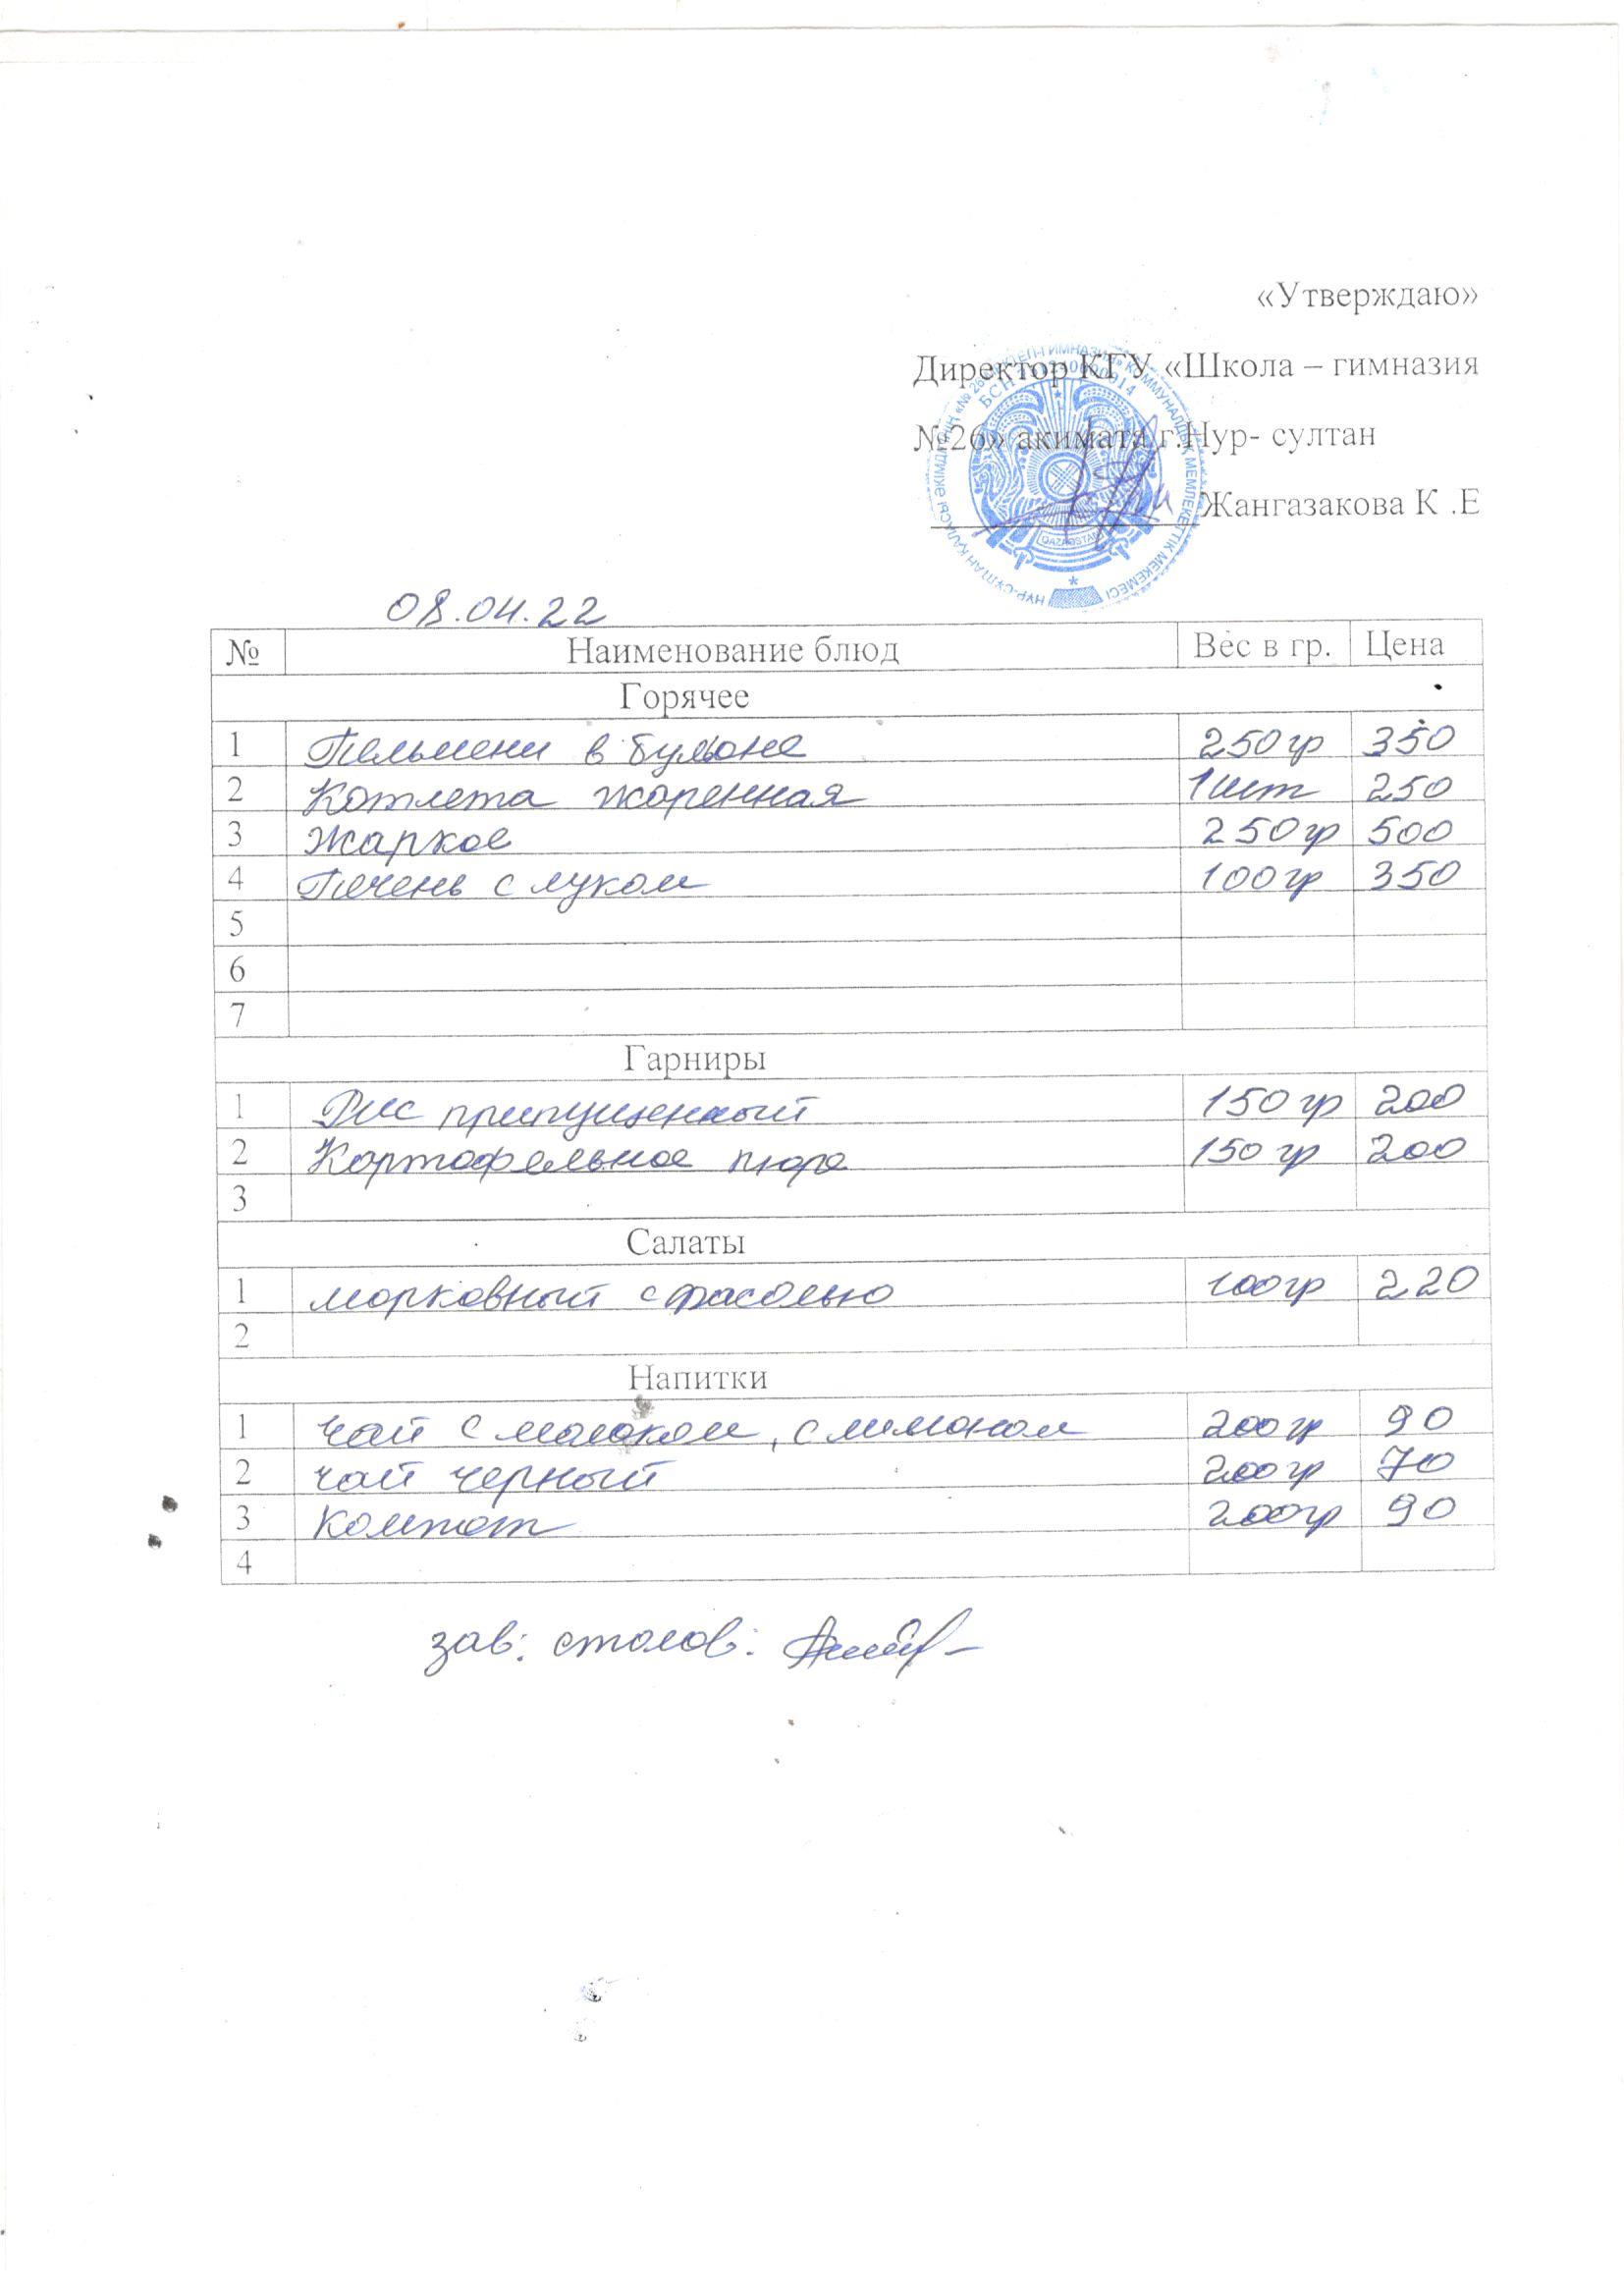 «Утверждаю»
Директор КГУ «Школа – гимназия
№26» акимата г.Нур- султан
Жангазакова К .Е
08.04.22
№ Наименование блюд Вес в гр. Цена
Горячее
1 Пельмени в бульоне 250гр 350
2 Котлета жаренная 1шт 250
3 Жаркое 250гр 500
4 Печень с луком 100гр 350
5
6
7
Гарниры
1 Рис припущенный 150гр 200
2 Картофельное пюре 150гр 200
3
Салаты
1 морковный с фасолью 100гр 220
2
Напитки
1 чай с молоком, с лимоном 200гр 90
2 чай черный 200гр 70
3 Компот 200гр 90
4
зав: столов: